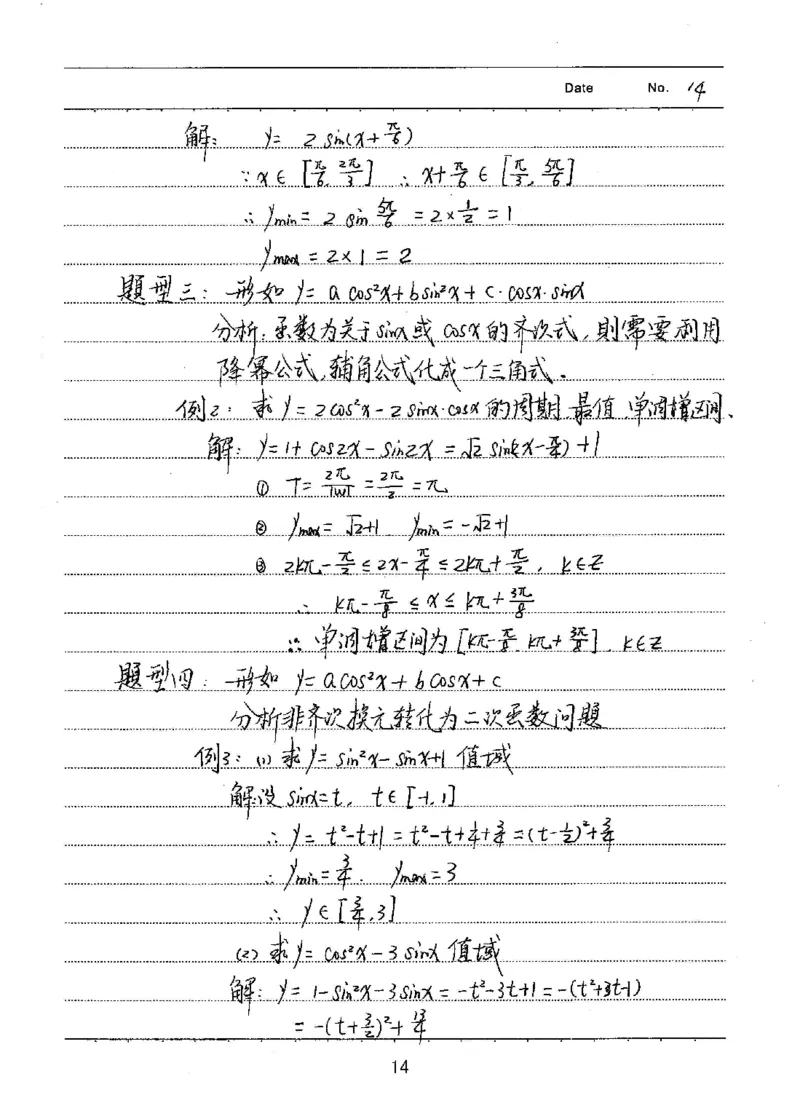 Date No. 14
解: y= 2 sin(x+π/6)
∵ x∈ [π/6, 2π/3] ∴ x+π/6 ∈ [π/3, 5π/6]
∴ ymin= 2 sin 5π/6 =2×1/2 =1
ymax =2×1 = 2
题型三: 一形如 y= a cos²x+bsin²x+ c·cosx·sinx
分析: 函数为关于sinx或 cosx的齐次式, 则需要利用
降幂公式, 辅角公式化成一个三角式.
例2: 求 y=2cos²x-2 sinx·cosx的周期 最值 单调增区间.
解: y=1+ cos2x-sin2x =√2 sin(2x-π/4)+1
① T= 2π/|W| =2π/2 =π
② ymax= √2+1 ymin= -√2+1
③ 2kπ-π/2≤2x-π/4≤2kπ+π/2, k∈Z
∴ kπ-π/8 ≤x≤ kπ+3π/8
∴ 单调增区间为 [kπ-π/8 kπ+3π/8] k∈Z
题型四: 一形如 y= acos²x+bcosx+c
分析非齐次换元转化为二次函数问题
例3: (1) 求y=sin²x-sinx+1 值域
解:设 sinx=t, t∈[-1,1]
∴ y= t²-t+1 = t²-t+1/4+3/4 =(t-1/2)²+3/4
∴ ymin=3/4. ymax=3
∴ y∈[3/4,3]
(2) 求y= cos²x-3 sinx 值域
解: y= 1-sin²x-3sinx= -t²-3t+1=-(t²+3t-1)
= -(t+3/2)²+13/4
14